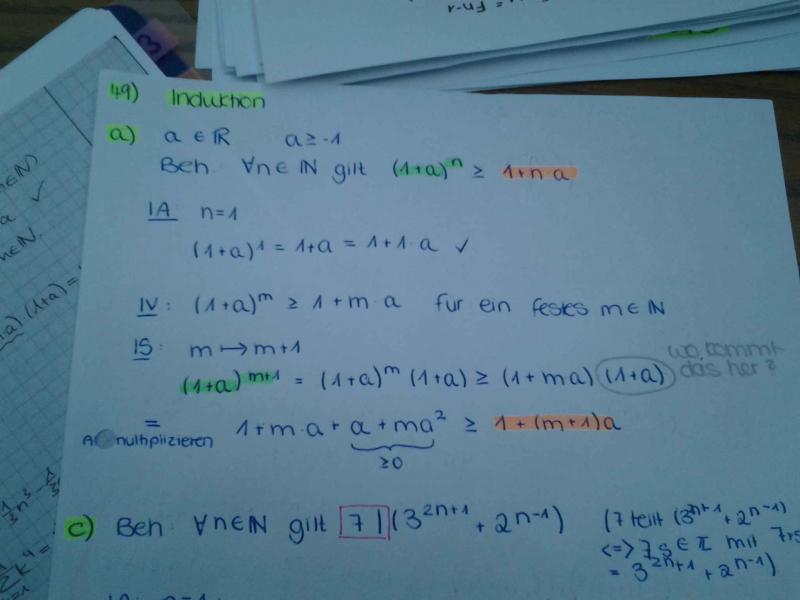 = fn-1
3
49) Induktion
a) a ∈ ℝ a ≥ -1
Beh. ∀n∈ℕ gilt (1+a)ⁿ ≥ 1+n·a
IA: n=1
(1+a)¹ = 1+a = 1+1·a ✓
IV: (1+a)ᵐ ≥ 1+m·a für ein festes m∈ℕ
IS: m ↦ m+1
(1+a)ᵐ⁺¹ = (1+a)ᵐ (1+a) ≥ (1+ma) (1+a) wo kommt das her?
= 1+m·a + a + ma² ≥ 1+(m+1)a
multiplizieren
≥0
c) Beh. ∀n∈ℕ gilt 7 | (3²ⁿ⁺¹ + 2ⁿ⁻¹)
(7 teilt (3ⁿ⁺¹ + 2ⁿ⁻¹)
<=> ∃ s ∈ ℤ mit 7·s
= 3²ⁿ⁺¹ + 2ⁿ⁻¹)